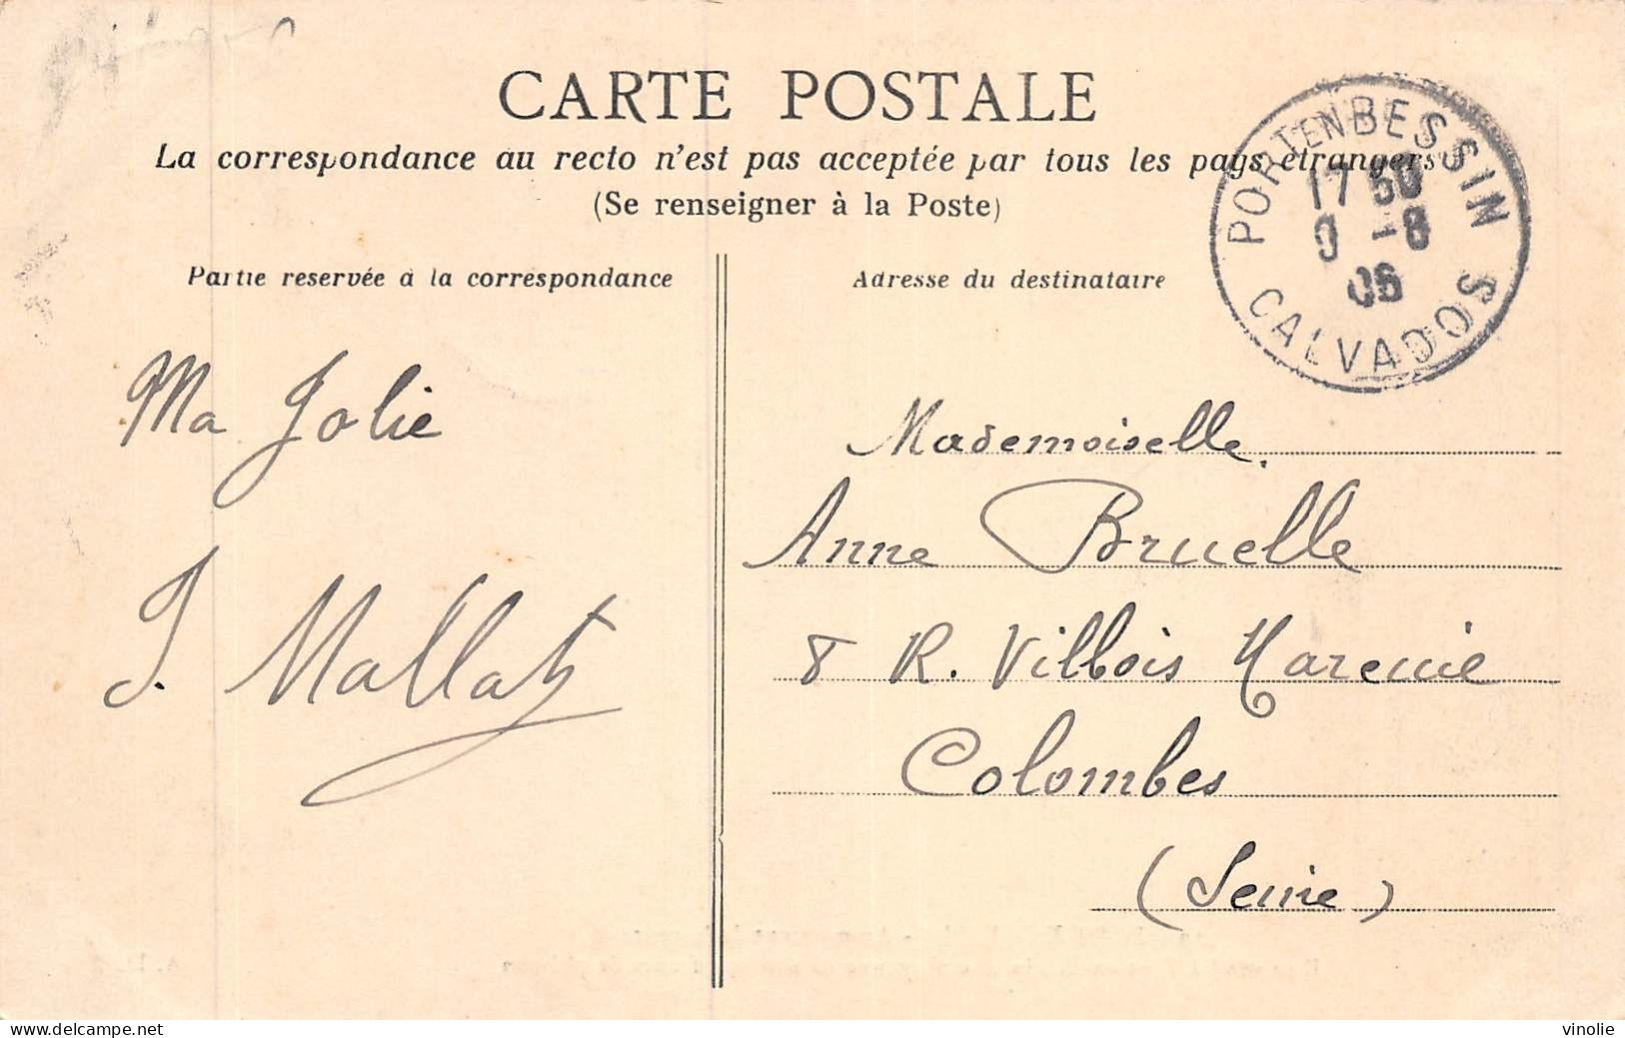 CARTE POSTALE
La correspondance au recto n'est pas acceptée par tous les pays étrangers
(Se renseigner à la Poste)
PORT EN BESSIN
17 50
9 -8
06
CALVADOS
Partie reservée à la correspondance
Adresse du destinataire
Ma Jolie
J. Mallat
Mademoiselle
Anne Bruelle
8 R. Villbois Mareuie
Colombes
(Seine)
delcampe.net
vinolie